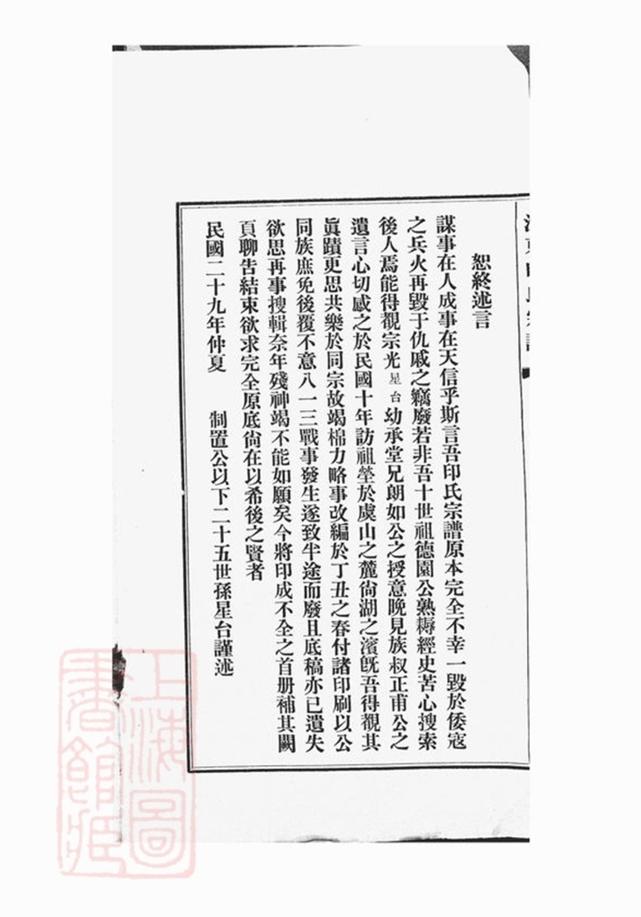 恕終述言
謀事在人成事在天信乎斯言吾印氏宗譜原本完全不幸一毀於倭寇
之兵火再毀于仇戚之竊廢若非吾十世祖德園公熟耨經史苦心搜索
後人焉能得觀宗光星台幼承堂兄朗如公之授意晚見族叔正甫公之
遺言心切感之於民國十年訪祖塋於虞山之麓尙湖之濱旣吾得觀其
眞蹟更思共樂於同宗故竭棉力略事改編於丁丑之春付諸印刷以公
同族庶免後覆不意八一三戰事發生遂致半途而廢且底稿亦已遺失
欲思再事搜輯奈年殘神竭不能如願矣今將印成不全之首册補其闕
頁聊告結束欲求完全原底尙在以希後之賢者
民國二十九年仲夏 制置公以下二十五世孫星台謹述
上海圖
書館藏